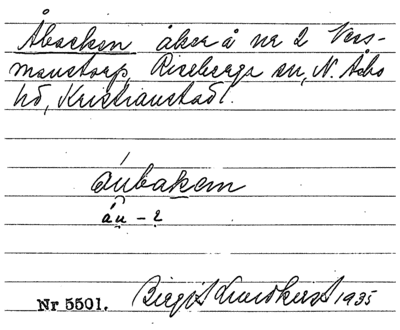 Åbacken åker å nr 2 Vers-
manstorp, Riseberga sn, N. Åsbo
hd, Kristianstad l.
áu̯bakɛn
áu̯ - 2
Nr 5501. Birgit 1935